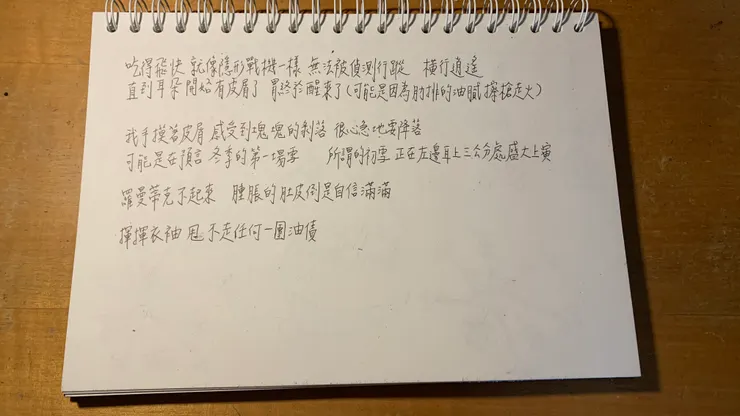 吃得飛快 就像隱形戰機一樣 無法被偵測行蹤 橫行逍遙
直到耳朵開始有皮屑了 胃終於醒來了(可能是因為肋排的油膩 擦槍走火)
我手摸著皮屑 感受到塊塊的剝落 很心急地要降落
可能是在預言 冬季的第一場雪 所謂的初雪 正在左邊耳上三公分處盛大上演
羅曼蒂克不起來 腫脹的肚皮倒是自信滿滿
揮揮衣袖 甩不走任何一圈油債